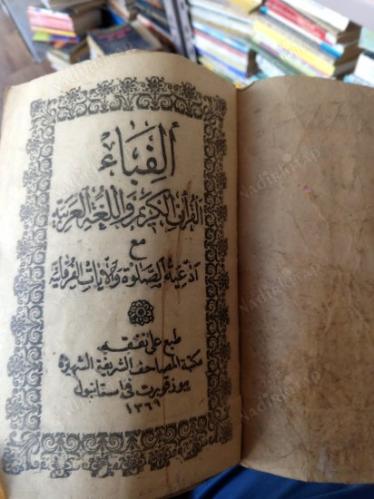 ألفباء
القرآن الكريم واللغة العربية
مع
ادعية الصلوة والآيات القرآنية
طبع على نفقة
مكتبة المصاحف الشريفة الشهيرة
في استانبول
١٣٦٩
Nadirkitap